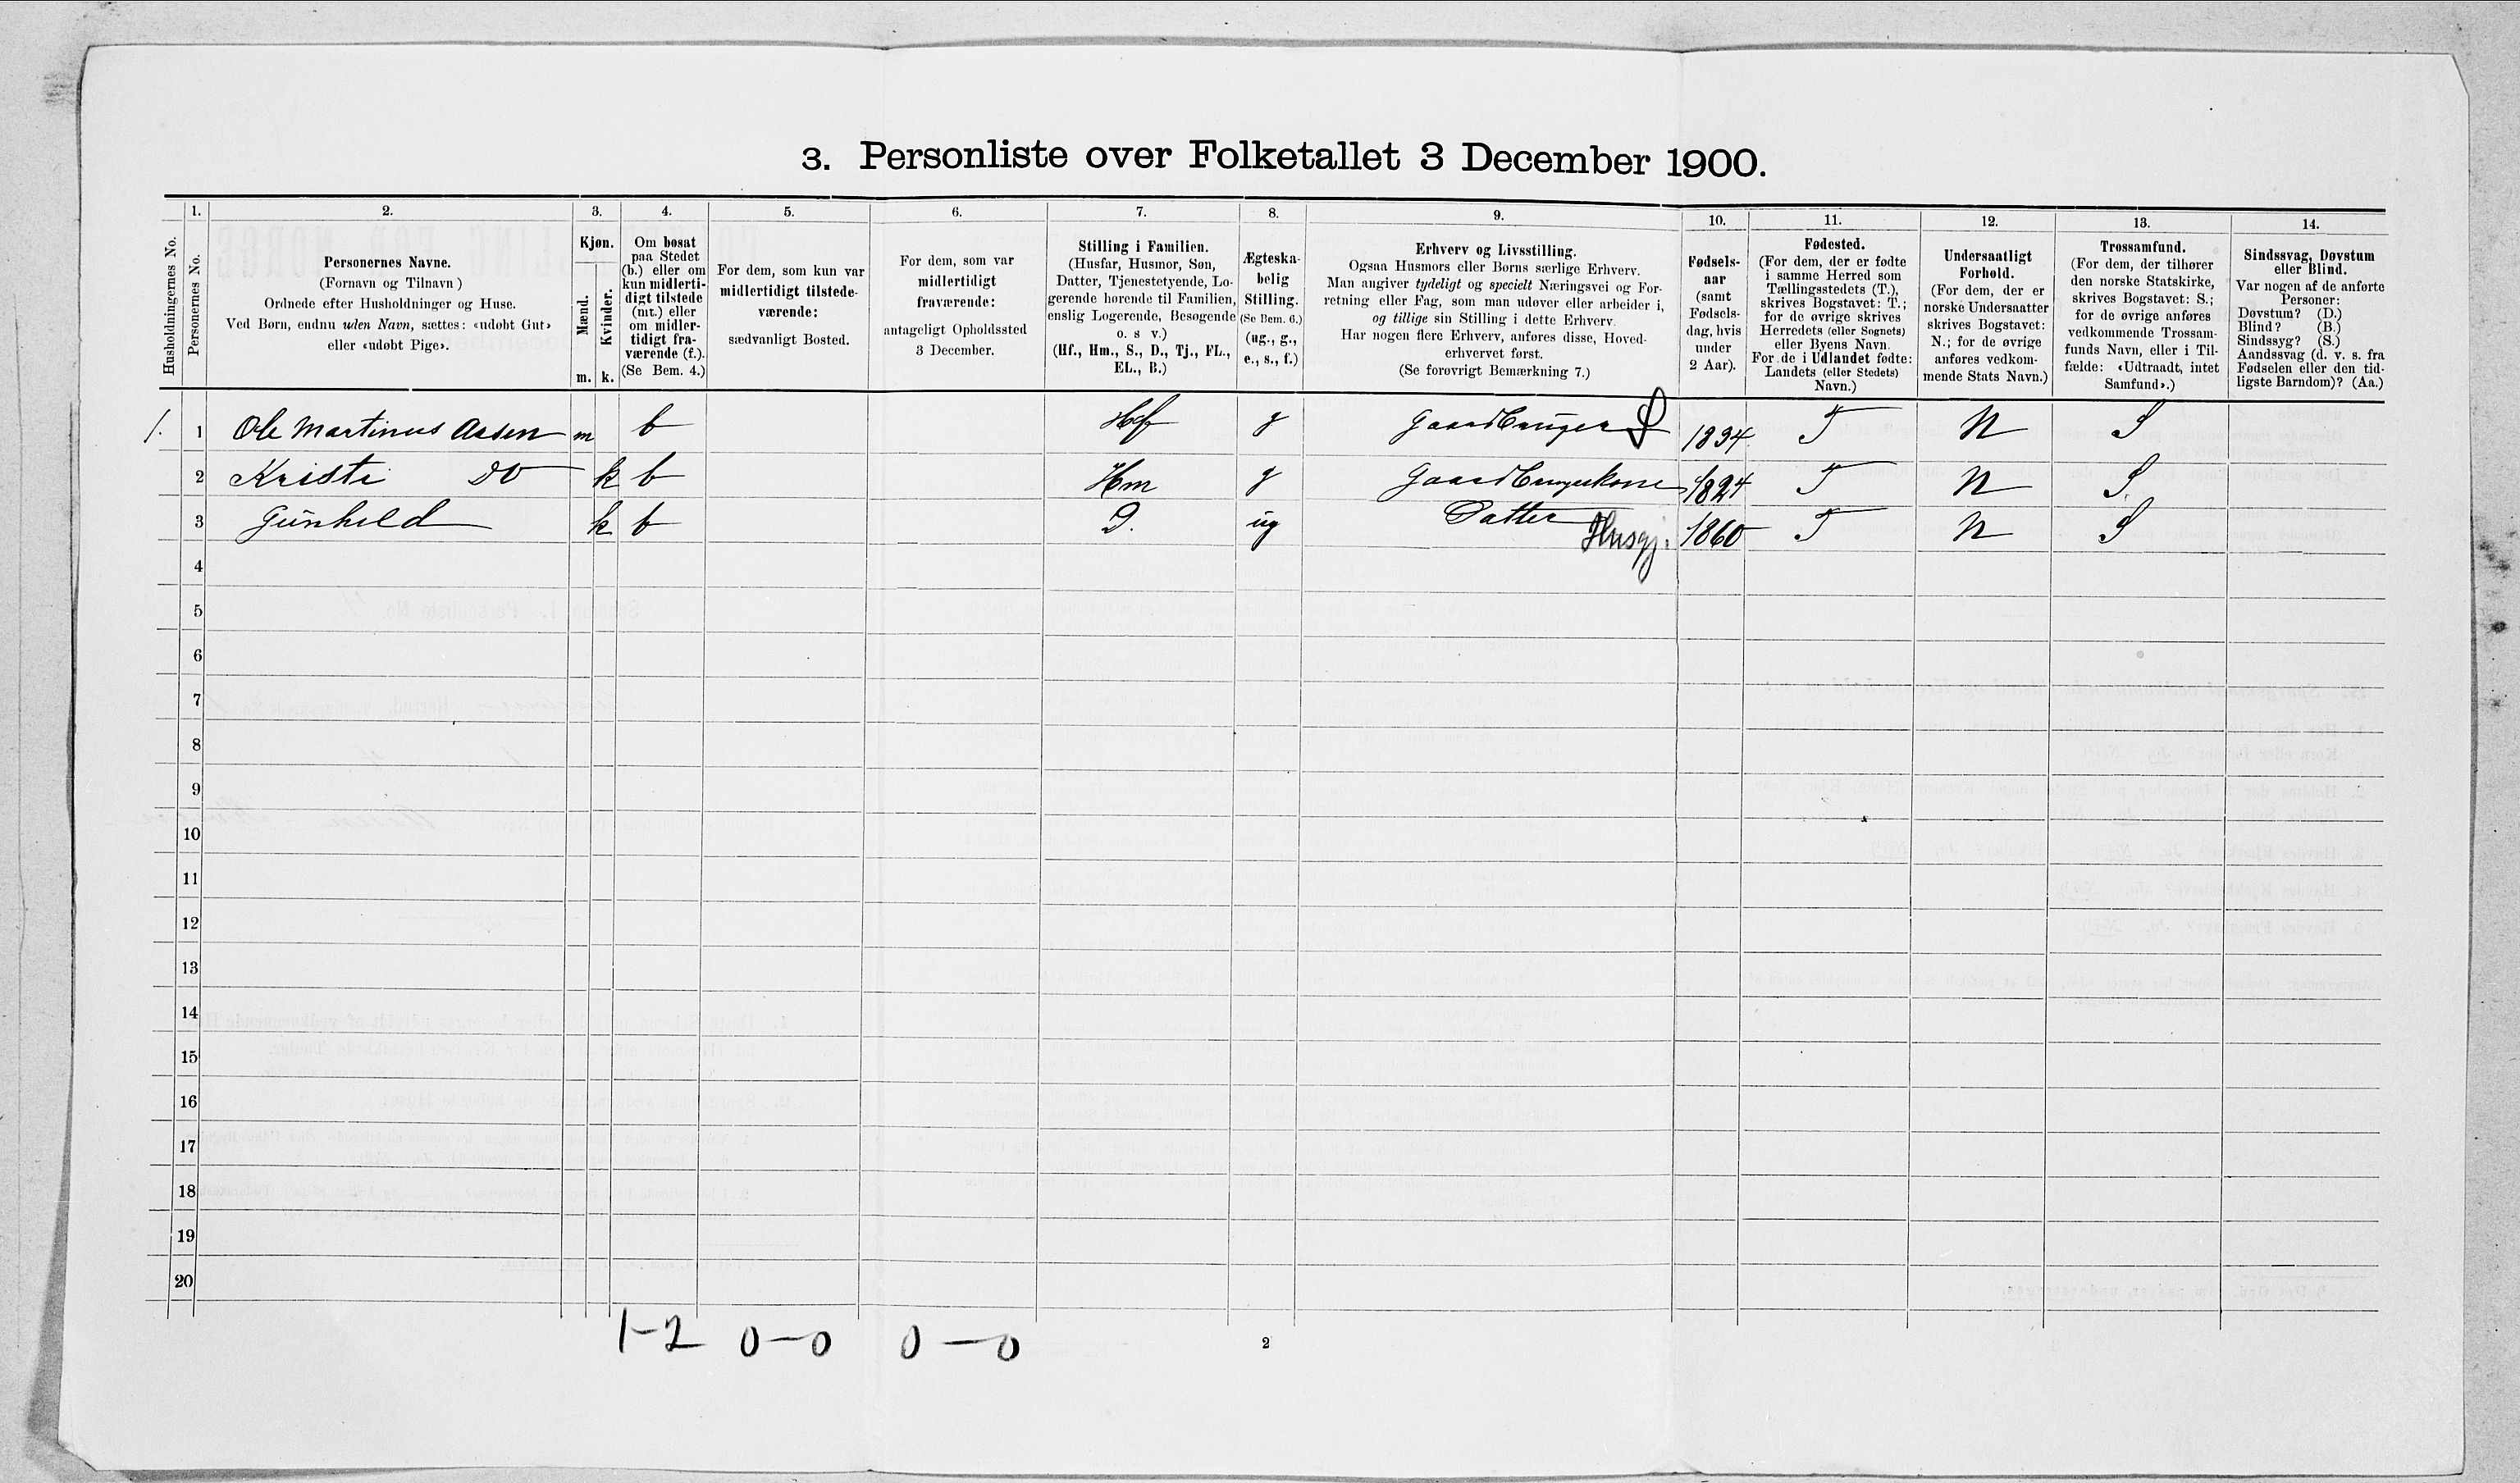 3. Personliste over Folketallet 3 December 1900.
Husholdningernes No.
1.
Personernes No.
2.
Personernes Navne.
(Fornavn og Tilnavn)
Ordnede efter Husholdninger og Huse.
Ved Børn, endnu uden Navn, sættes: «udøbt Gut»
eller «udøbt Pige».
3.
Kjøn.
Mænd.
m.
Kvinder.
k.
4.
Om bosat
paa Stedet
(b.) eller om
kun midlerti-
digt tilstede
(mt.) eller
om midler-
tidigt fra-
værende (f.).
(Se Bem. 4.)
5.
For dem, som kun var
midlertidigt tilstede-
værende:
sædvanligt Bosted.
6.
For dem, som var
midlertidigt
fraværende:
antageligt Opholdssted
3 December.
7.
Stilling i Familien.
(Husfar, Husmor, Søn,
Datter, Tjenestetyende, Lo-
gerende hørende til Familien,
enslig Logerende, Besøgende
o. s v.)
(Hf., Hm., S., D., Tj., FL.,
EL., B.)
8.
Ægteska-
belig
Stilling.
(Se Bem. 6.)
(ug., g.,
e., s., f.)
9.
Erhverv og Livsstilling.
Ogsaa Husmors eller Børns særlige Erhverv.
Man angiver tydeligt og specielt Næringsvei og For-
retning eller Fag, som man udøver eller arbeider i,
og tillige sin Stilling i dette Erhverv.
Har nogen flere Erhverv, anføres disse, Hoved-
erhvervet først.
(Se forøvrigt Bemærkning 7.)
10.
Fødsels-
aar
(samt
Fødsels-
dag, hvis
under
2 Aar).
11.
Fødested.
(For dem, der er fødte
i samme Herred som
Tællingsstedets (T.),
skrives Bogstavet: T.;
for de øvrige skrives
Herredets (eller Sognets)
eller Byens Navn.
For de i Udlandet fødte:
Landets (eller Stedets)
Navn.)
12.
Undersaatligt
Forhold.
(For dem, der er
norske Undersaatter
skrives Bogstavet:
N.; for de øvrige
anføres vedkom-
mende Stats Navn.)
13.
Trossamfund.
(For dem, der tilhører
den norske Statskirke,
skrives Bogstavet: S.;
for de øvrige anføres
vedkommende Trossam-
funds Navn, eller i Til-
fælde: «Udtraadt, intet
Samfund».)
14.
Sindssvag, Døvstum
eller Blind.
Var nogen af de anførte
Personer:
Døvstum? (D.)
Blind? (B.)
Sindssyg? (S.)
Aandssvag (d. v. s. fra
Fødselen eller den tid-
ligste Barndom)? (Aa.)
1. 1 Ole Martinus Aasen m b Hf g Gaardbruger S 1834 T N S
2 Kristi Do k b Hm g Gaardbrugerkone 1824 T N S
3 Gunhild k b D. ug Datter Husgj. 1860 T N S
4
5
6
7
8
9
10
11
12
13
14
15
16
17
18
19
20
1-2 0-0 0-0
2